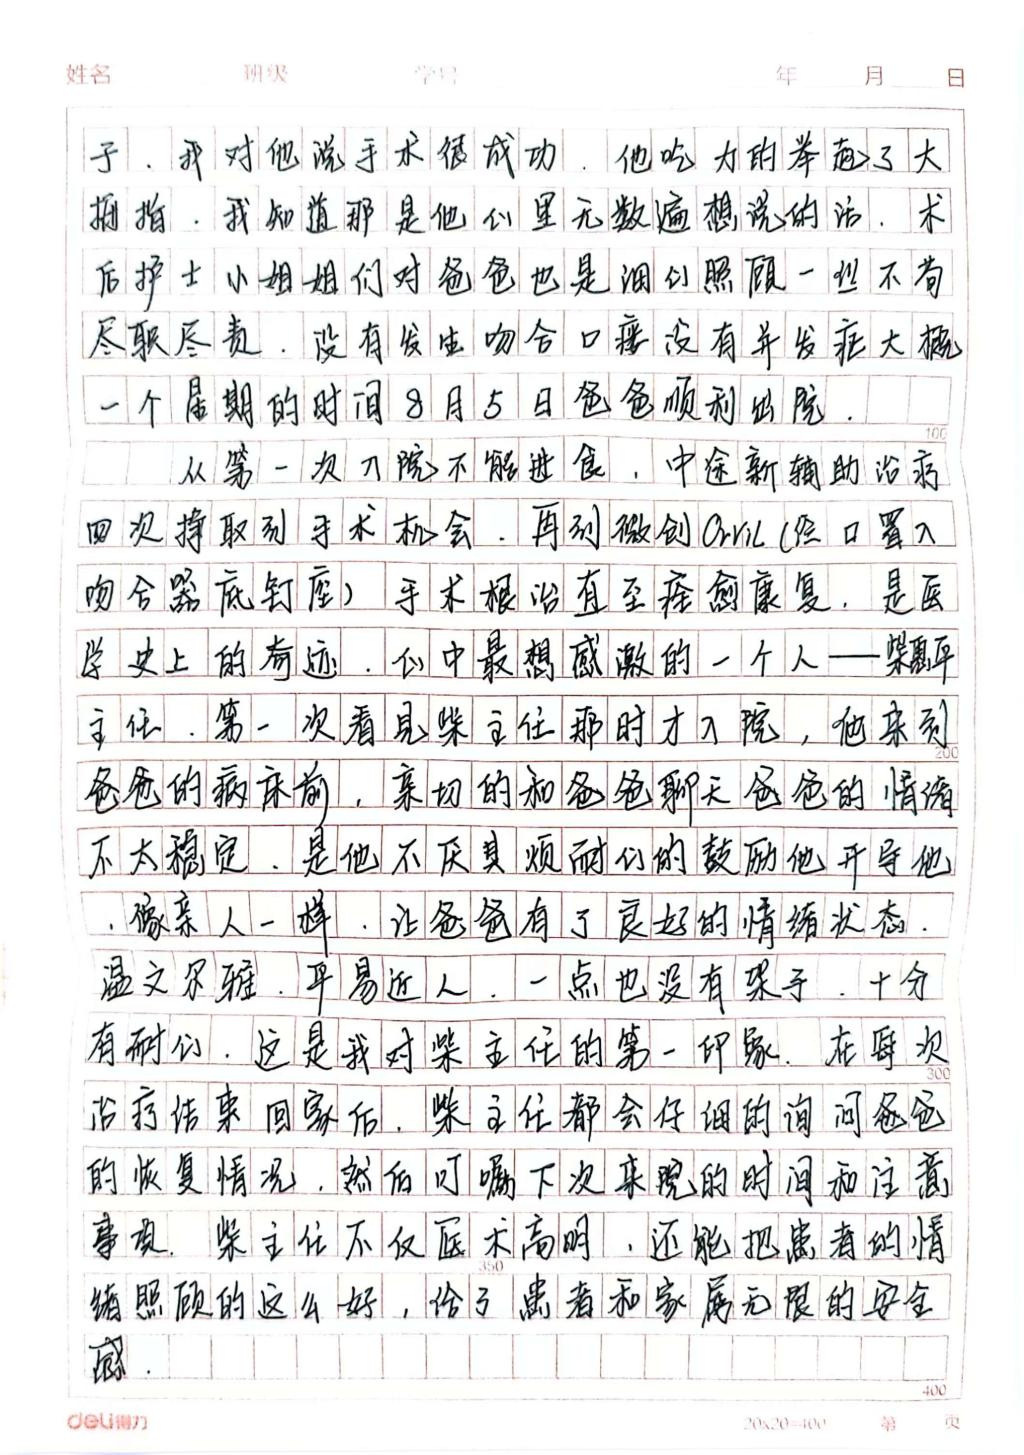 姓名 班级 学号 年 月 日
子.我对他说手术很成功.他吃力的举起了大
拇指.我知道那是他心里无数遍想说的话.术
后护士小姐姐们对爸爸也是细心照顾一丝不苟
尽职尽责.没有发生吻合口瘘没有并发症大概
一个星期的时间8月5日爸爸顺利出院.
100
从第一次入院不能进食,中途新辅助治疗
四次择取到手术机会.再到微创Orvil(经口置入
吻合器底钉座)手术根治直至痊愈康复.是医
学史上的奇迹.心中最想感激的一个人——柴惠平
主任.第一次看见柴主任那时才入院,他来到
200
爸爸的病床前,亲切的和爸爸聊天爸爸的情绪
不太稳定.是他不厌其烦耐心的鼓励他开导他
.像亲人一样.让爸爸有了良好的情绪状态.
温文尔雅.平易近人.一点也没有架子.十分
有耐心.这是我对柴主任的第一印象.在每次
300
治疗结束回家后.柴主任都会仔细的询问爸爸
的恢复情况.然后叮嘱下次来院的时间和注意
事项.柴主任不仅医术高明,还能把患者的情
350
绪照顾的这么好,给了患者和家属无限的安全
感.
400
deli得力 20x20=400 第 页